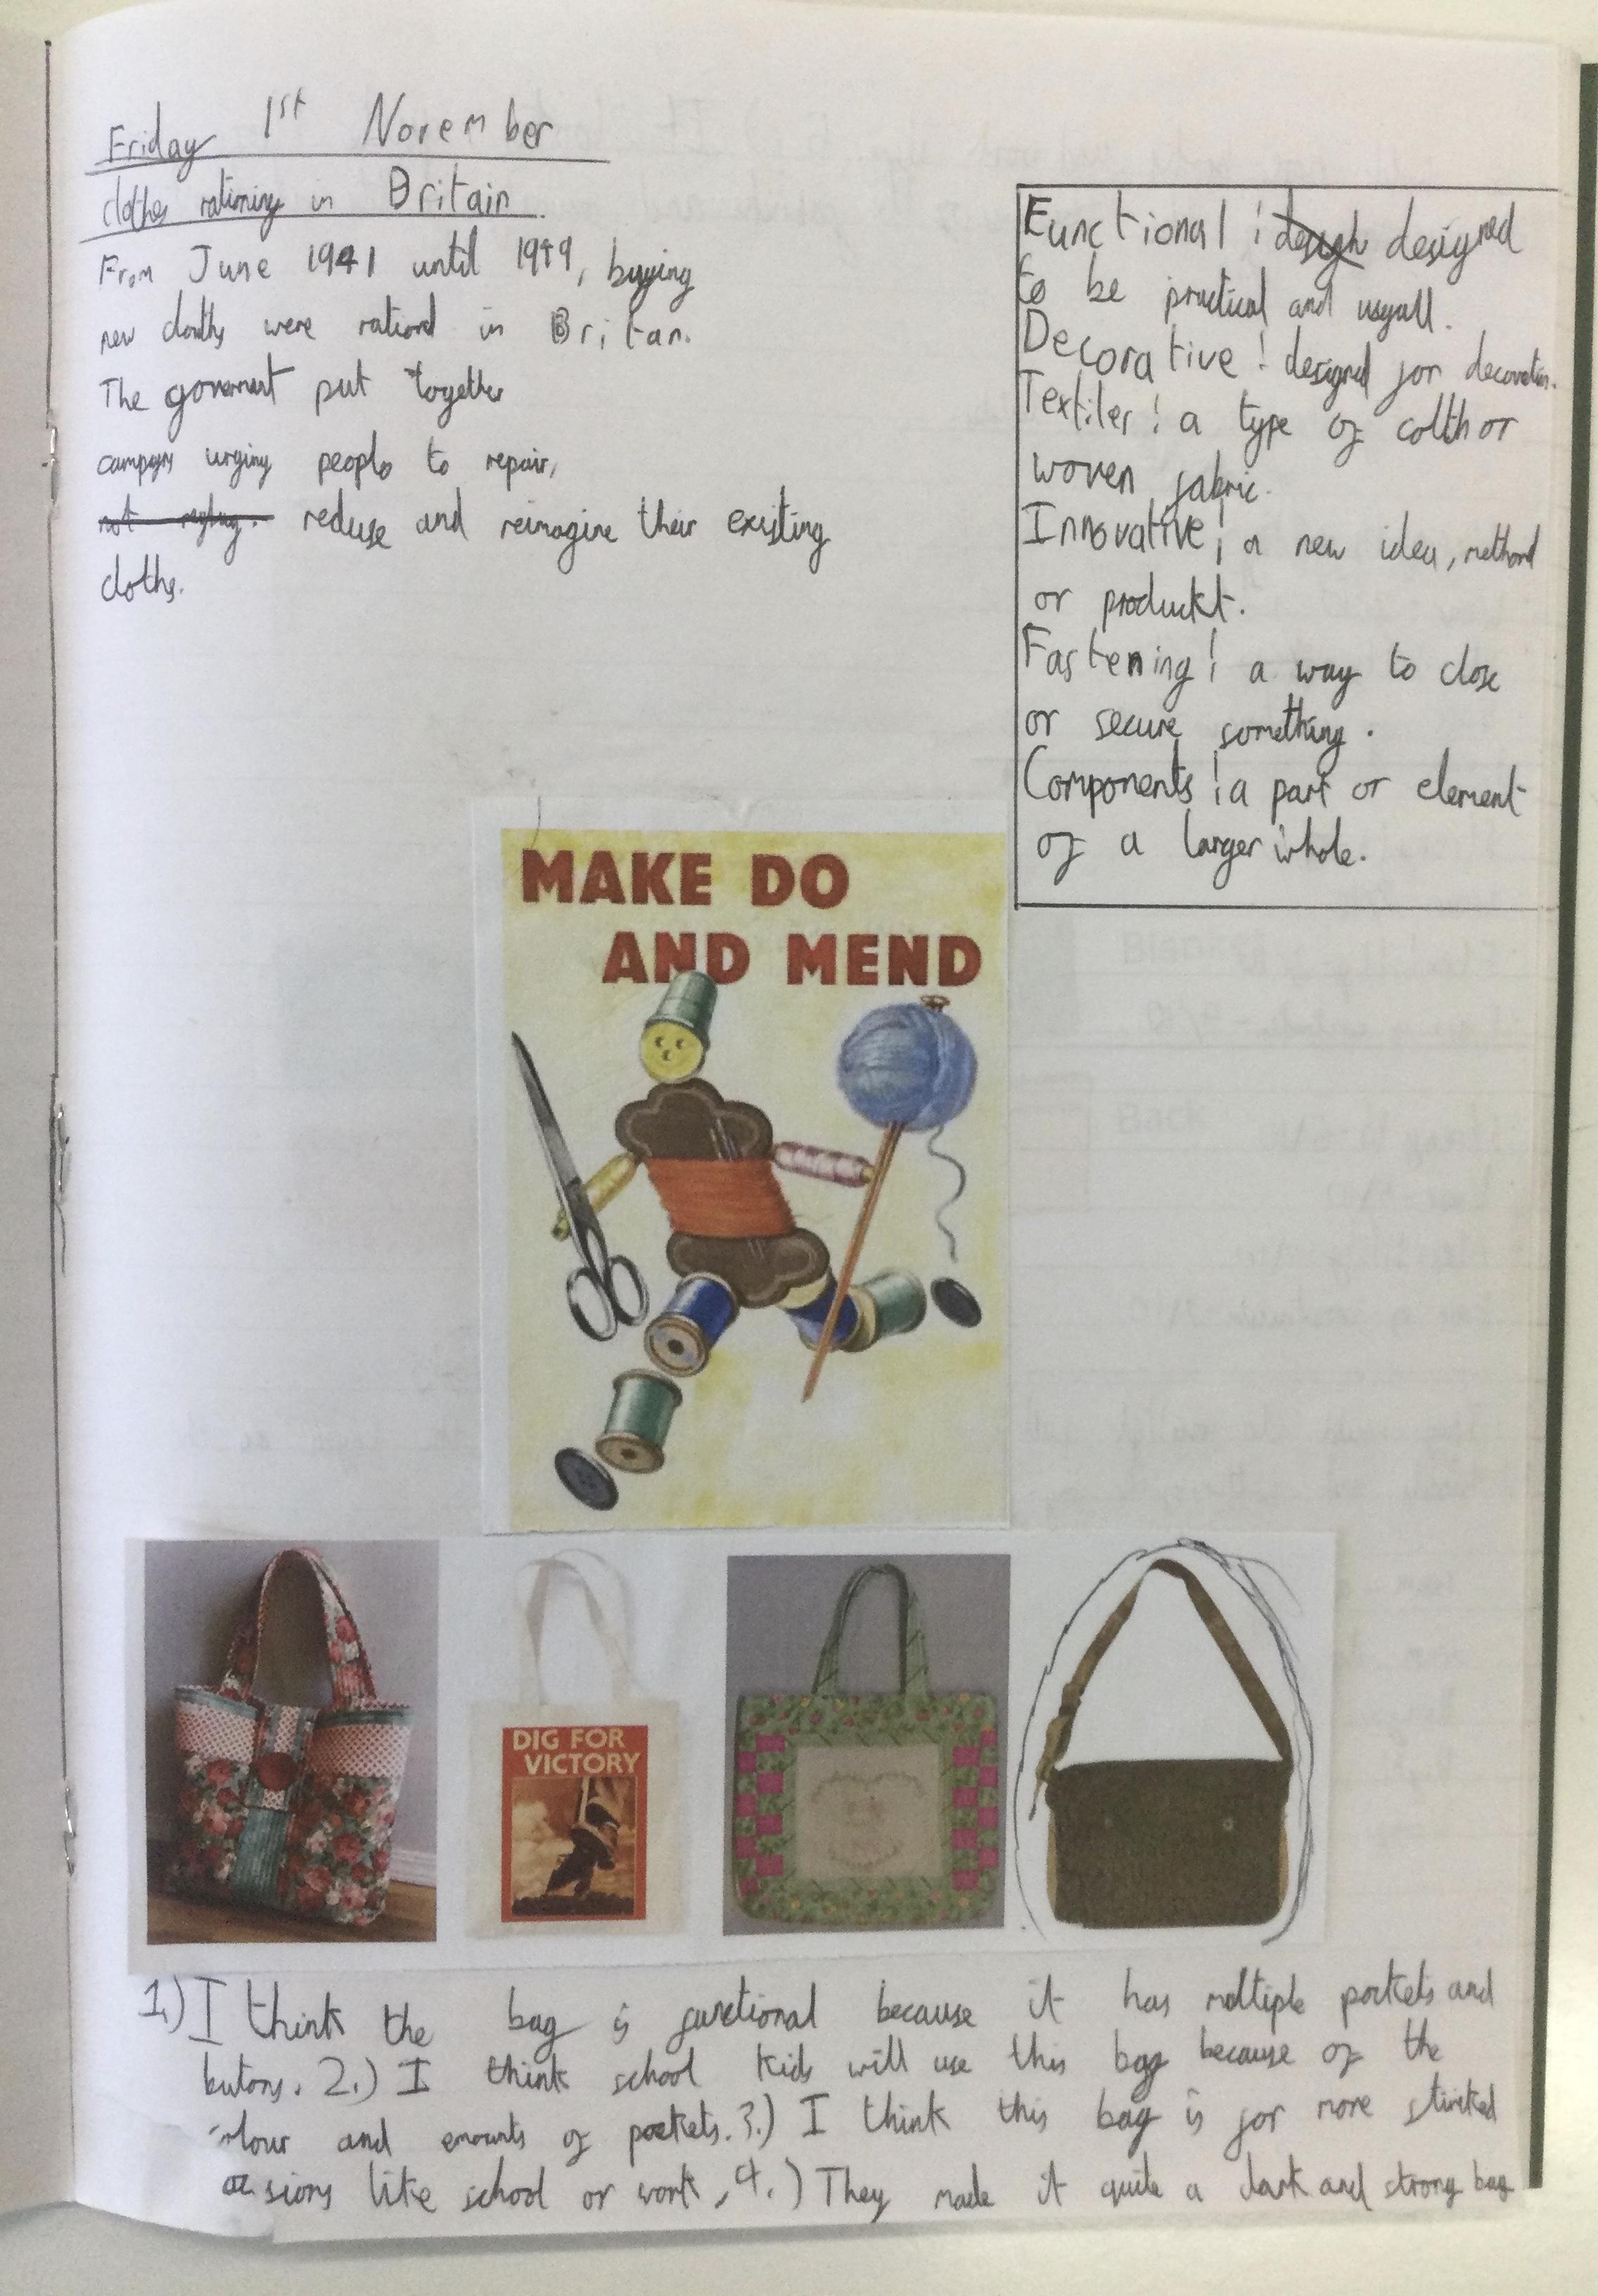 Friday 1st November
clothes rationing in Britain.
From June 1941 until 1949, buying
new cloths were rationd in Britan.
The goverment put together
campagns urging people to repair,
reduse and reimagine their existing
cloths.
Functional : designed
to be practical and usyall.
Decorative : designed for decoration.
Textiles : a type of colth or
woven fabric.
Innovative : a new idea, methord
or produckt.
Fastening : a way to close
or secure something.
Components : a part or element
of a larger whole.
MAKE DO
AND MEND
DIG FOR
VICTORY
1.) I think the bag is functional because it has moltiple pockets and
butons. 2.) I think school kids will use this bag because of the
colour and emounts of pockets. 3.) I think this bag is for more
like school or work, 4.) They made it quite a dark and strong bag